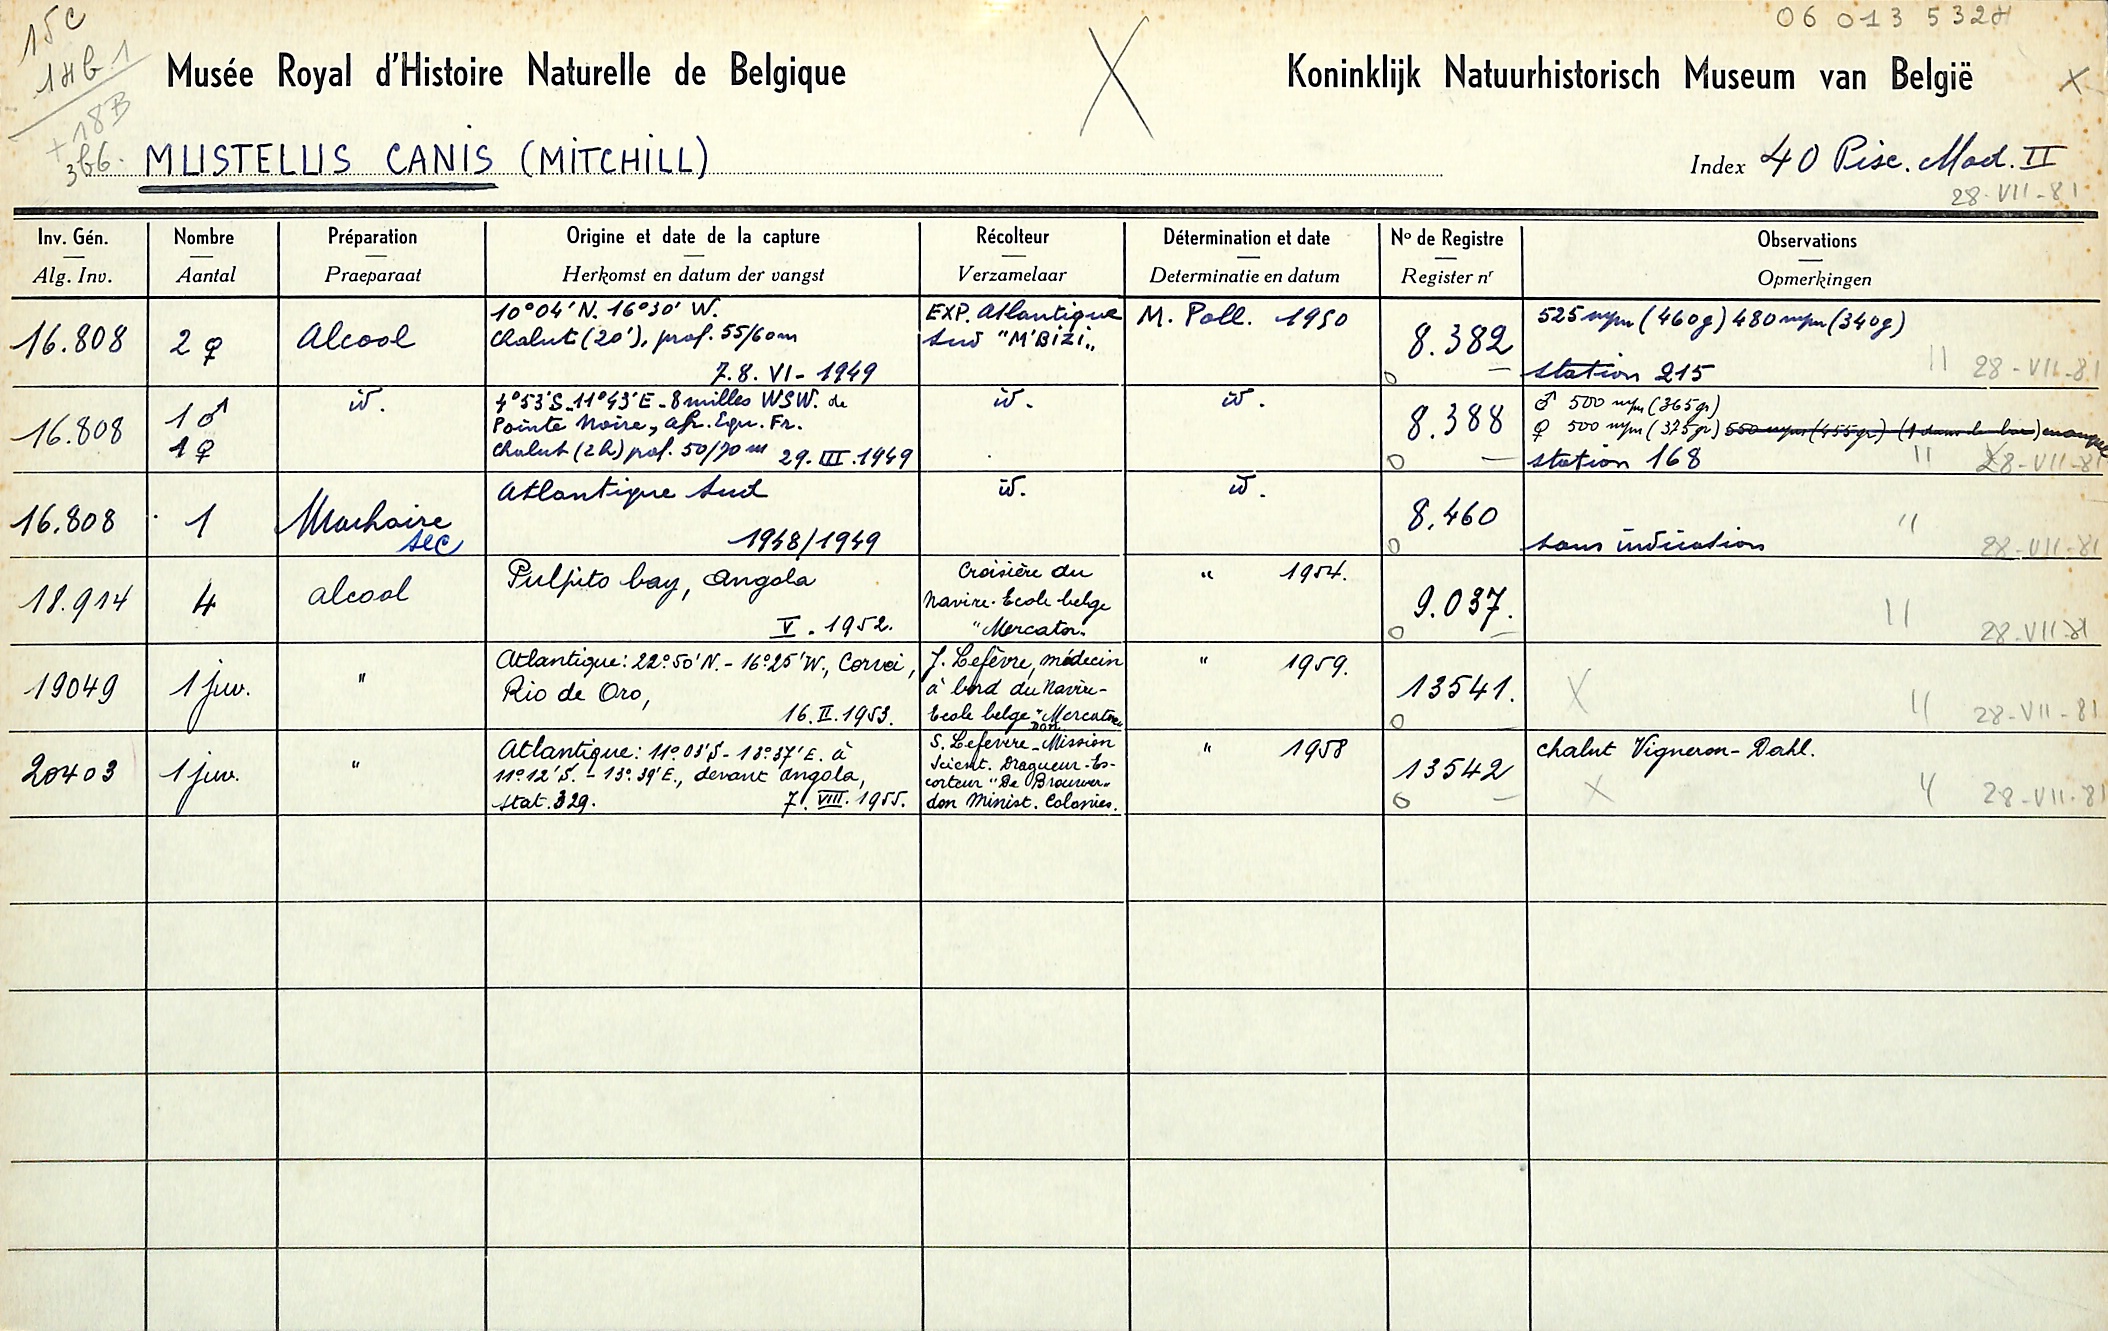 15c
1Hb.1
+18B
3b6.
06 013 532H
Musée Royal d'Histoire Naturelle de Belgique
Koninklijk Natuurhistorisch Museum van België
MUSTELUS CANIS (MITCHILL)
Index 40 Pisc. Mad. II
28-VII-81
Inv. Gén. Nombre Préparation Origine et date de la capture Récolteur Détermination et date No de Registre Observations
Alg. Inv. Aantal Praeparaat Herkomst en datum der vangst Verzamelaar Determinatie en datum Register nr Opmerkingen
16.808
2 ♀
Alcool
10°04'N. 16°30' W.
Chalut (20'), prof. 55/60m
7.8. VI - 1949
EXP. Atlantique
Sud "M'Bizi"
M. Poll. 1950
8.382
525 mm (460g) 480 mm (340g)
station 215
" 28-VII-81
16.808
1 ♂
1 ♀
id.
4°53'S_11°43'E_8 milles WSW. de
Pointe Noire, Afr. Equ. Fr.
chalut (2h) prof. 50/70 m 29.III.1949
id.
id.
8.388
♂ 500 mm (365gr)
♀ 500 mm (375gr) 550 mm (455gr) (1 dans le bac) manque
station 168
" 28-VII-81
16.808
1
Machoire
sec
Atlantique Sud
1948/1949
id.
id.
8.460
sans indication
" 28-VII-81
18.914
4
alcool
Pulpito bay, Angola
V. 1952.
Croisière du
Navire-Ecole belge
"Mercator"
" 1954.
9.037.
" 28-VII-81
19049
1 juv.
"
Atlantique: 22°50'N. - 16°25'W.,
Rio de Oro,
16.II.1953.
J. Lefèvre, médecin
à bord du Navire-
Ecole belge "Mercator"
" 1959.
13541.
X " 28-VII-81
20403
1 juv.
"
Atlantique: 11°03'S - 13°37'E. à
11°12'S. - 13°39'E., devant Angola,
stat. 329. 7.VIII.1955.
Don
S. Lefevere_Mission
Scient. Dragueur-Es-
corteur "De Brouwer"
don Minist. Colonies.
" 1958
13542
chalut Vigneron-Dahl.
X " 28-VII-81